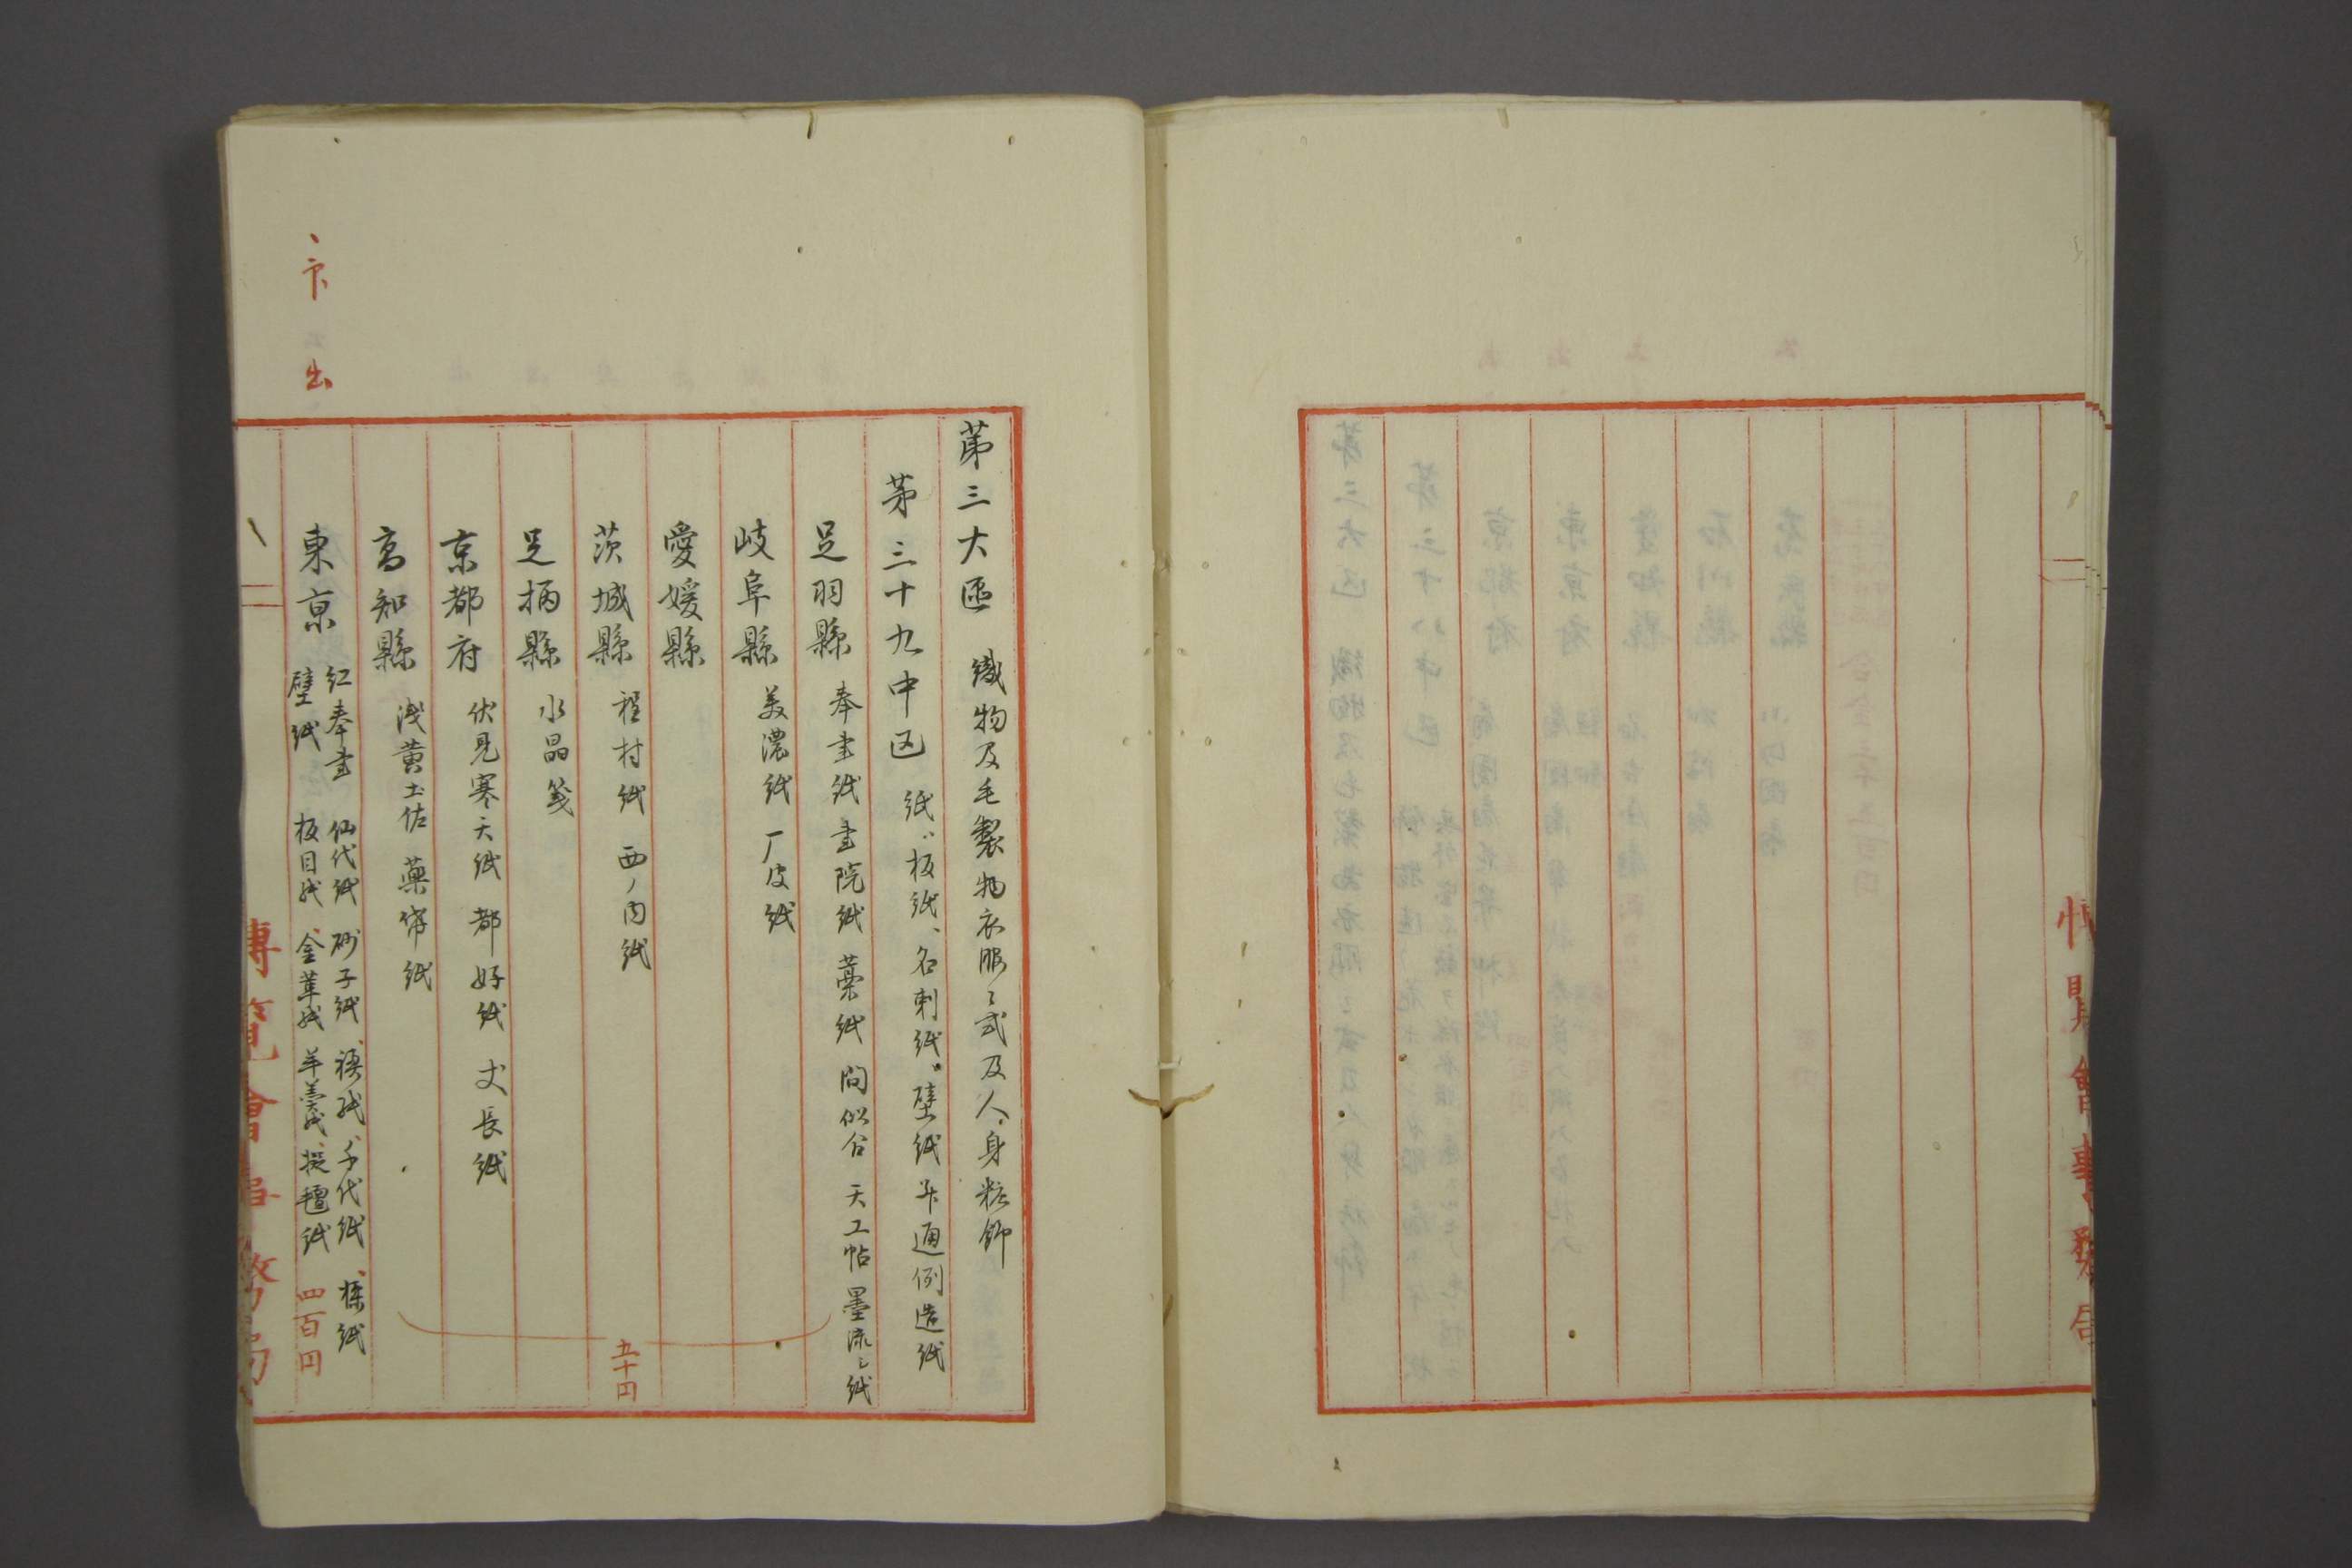 博覽會事務局
第三大區　織物及毛製物衣服ノ式及人身粧飾
第三十九中区　紙、板紙、名刺紙、壁紙并通例造紙
足羽縣　奉書紙　書院紙　葉紙　間似合　天工帖　墨流シ紙
岐阜縣　美濃紙　厂皮紙
愛媛縣
茨城縣　程村紙　西ノ内紙
足柄縣　水晶箋
京都府　伏見寒天紙　都好紙　丈長紙
高知縣　浅黄土佐　薬帋紙
五十円
出
東京　紅奉書　仙代紙　砂子紙、襖紙、千代紙、様紙
壁紙　板目紙、金革紙、羊羹紙、擬氊紙　四百円
博覽會事務局